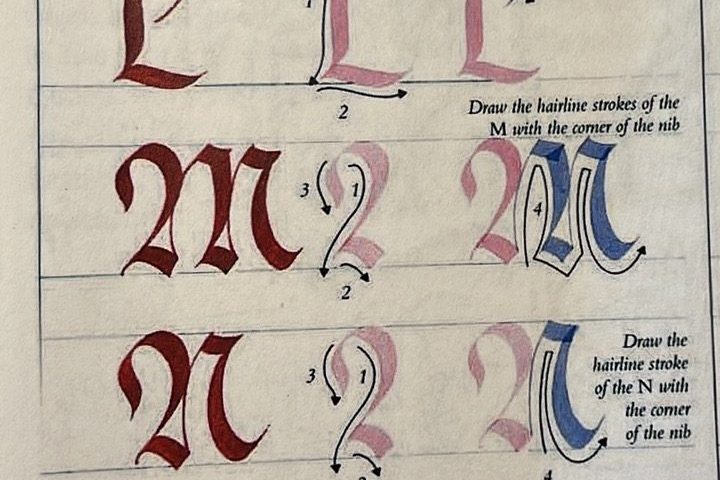 L
1
2
Draw the hairline strokes of the
M with the corner of the nib
M
3
1
2
4
N
3
1
Draw the
hairline stroke
of the N with
the corner
of the nib
4